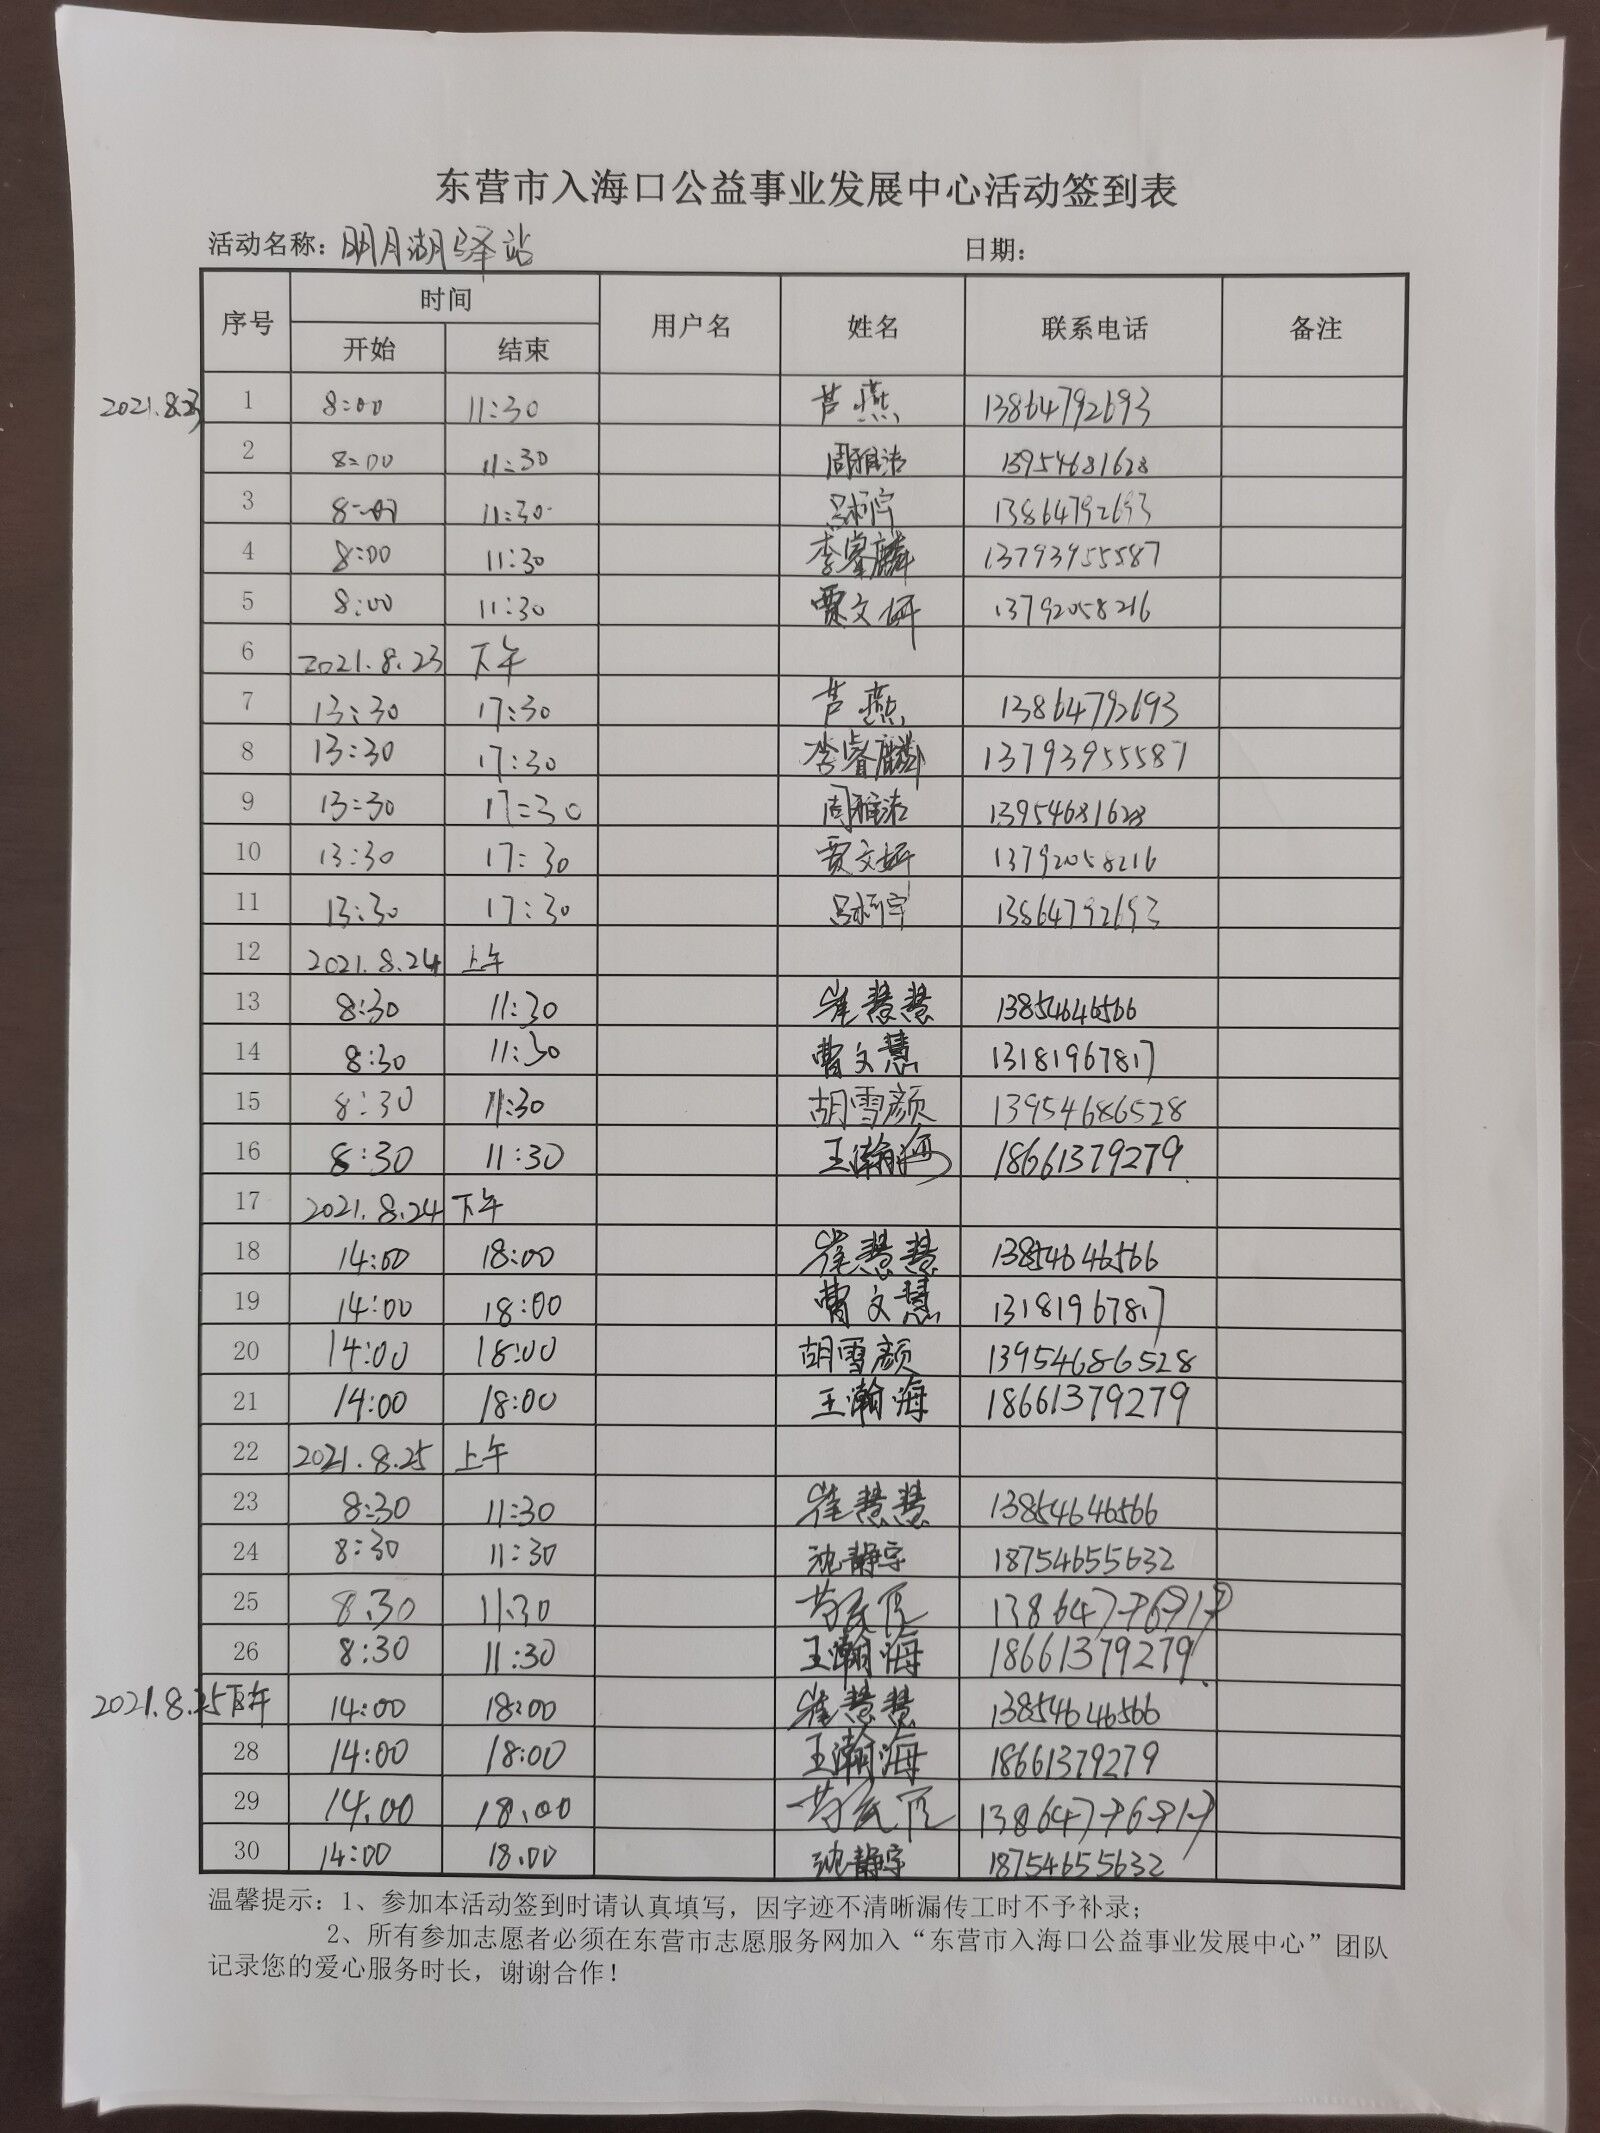 东营市入海口公益事业发展中心活动签到表
活动名称：明月湖驿站 日期：
序号 时间 用户名 姓名 联系电话 备注
开始 结束
2021.8.23 1 8:00 11:30 芦燕 13864792693
2 8:00 11:30 周雅洁 13954681628
3 8:00 11:30 吕柯宇 13864792693
4 8:00 11:30 李睿麟 13793955587
5 8:00 11:30 贾文妍 13792058216
6 2021.8.23 下午
7 13:30 17:30 芦燕 13864792693
8 13:30 17:30 李睿麟 13793955587
9 13:30 17:30 周雅洁 13954681628
10 13:30 17:30 贾文妍 13792058216
11 13:30 17:30 吕柯宇 13864792693
12 2021.8.24 上午
13 8:30 11:30 崔慧慧 13854646566
14 8:30 11:30 曹文慧 13181967817
15 8:30 11:30 胡雪颜 13954686528
16 8:30 11:30 王瀚海 18661379279
17 2021.8.24 下午
18 14:00 18:00 崔慧慧 13854646566
19 14:00 18:00 曹文慧 13181967817
20 14:00 18:00 胡雪颜 13954686528
21 14:00 18:00 王瀚海 18661379279
22 2021.8.25 上午
23 8:30 11:30 崔慧慧 13854646566
24 8:30 11:30 沈静宇 18754655632
25 8.30 11.30
26 8:30 11:30 王瀚海 18661379279
2021.8.25下午 14:00 18:00 崔慧慧 13854646566
28 14:00 18:00 王瀚海 18661379279
29 14.00 18.00
30 14:00 18.00 沈静宇 18754655632
温馨提示：1、参加本活动签到时请认真填写，因字迹不清晰漏传工时不予补录；
2、所有参加志愿者必须在东营市志愿服务网加入“东营市入海口公益事业发展中心”团队
记录您的爱心服务时长，谢谢合作！